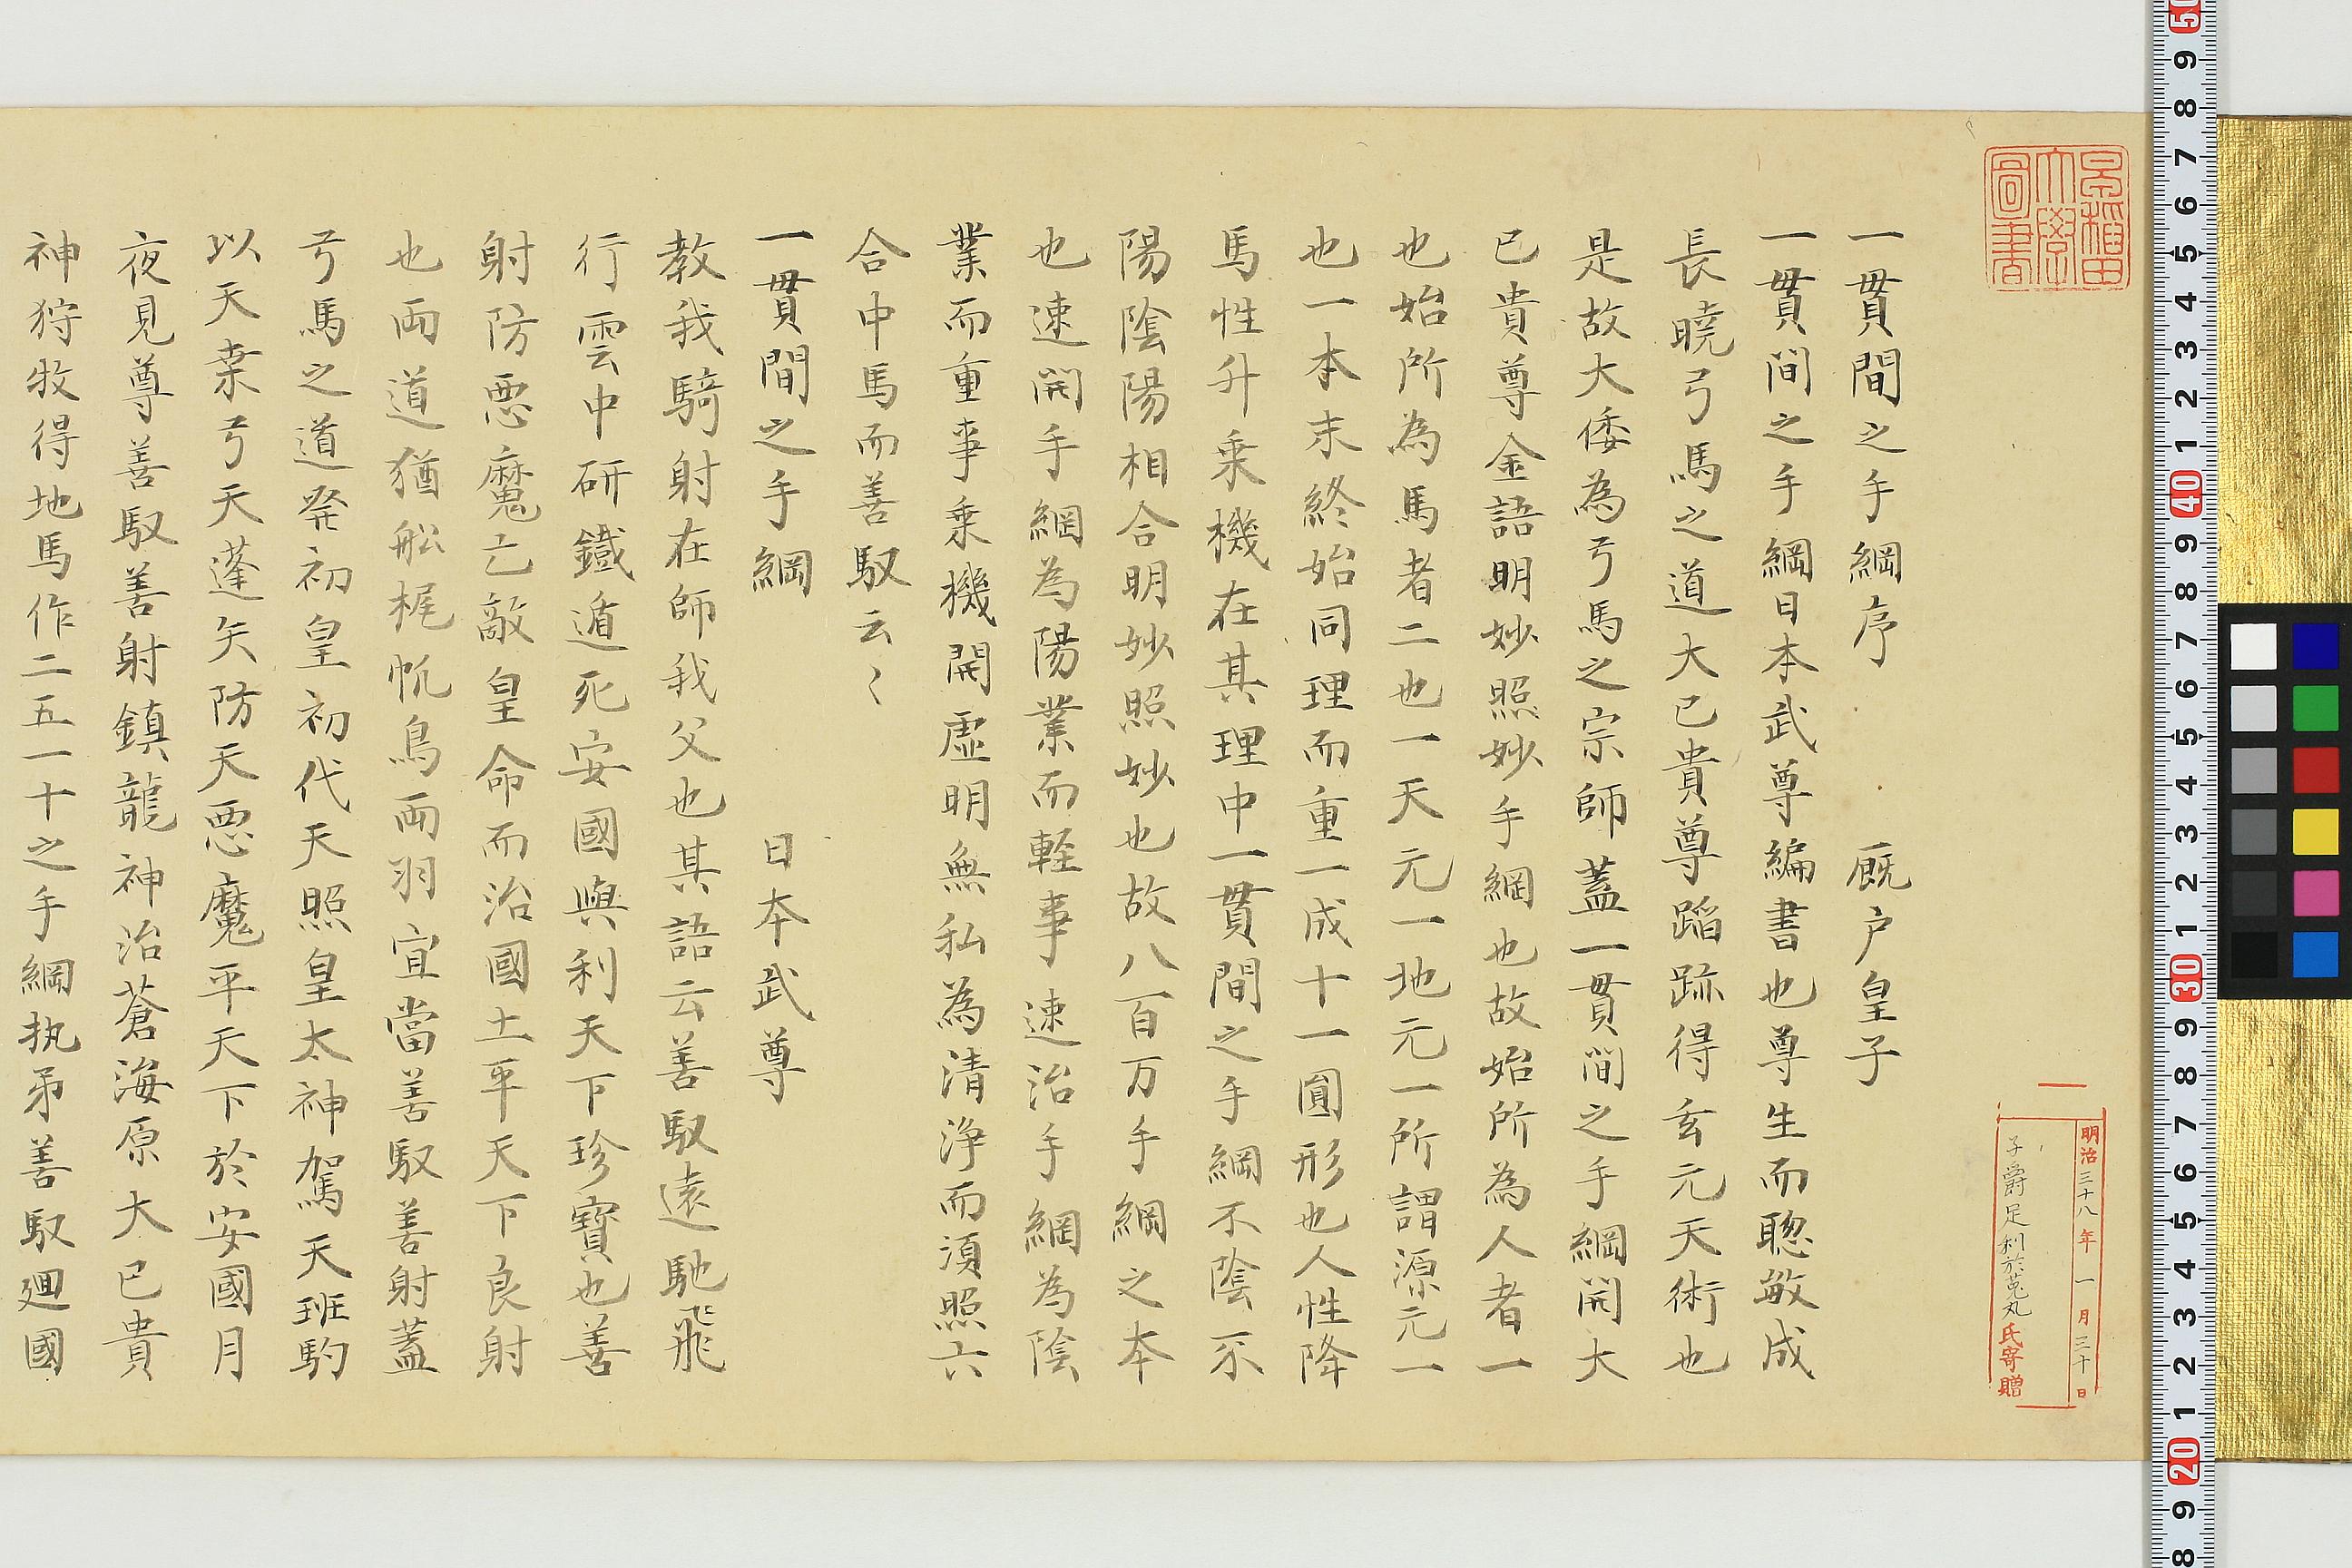 早稲田大學圖書
明治三十八年一月三十日
子爵足利於菟丸氏寄贈
一貫間之手綱序 厩户皇子
一貫间之手綱日本武尊編書也尊生而聡敏成
長暁弓馬之道大已貴尊蹈跡得玄元天術也
是故大倭為弓馬之宗師蓋一貫间之手綱開大
已貴尊金語明妙照妙手綱也故始所為人者一
也始所為馬者二也一天元一地元一所謂源元一
也一本末終始同理而重一成十一圓形也人性降
馬性升乗機在其理中一貫間之手綱不陰不
陽陰陽相合明妙照妙也故八百万手綱之本
也速開手綱為陽業而軽事速治手綱為陰
業而重事乗機開虚明無私為清浄而須照六
合中馬而善馭云〻
一貫間之手綱 日本武尊
教我騎射在師我父也其語云善馭遠馳飛
行雲中研鐵遁死安國與利天下珍寶也善
射防悪魔亡敵皇命而治國土平天下良射
也両道猶舩梶帆鳥両羽宜當善馭善射蓋
弓馬之道発初皇初代天照皇太神駕天班駒
以天棄弓天蓬矢防天悪魔平天下於安國月
夜見尊善馭善射鎮龍神治蒼海原大已貴
神狩牧得地馬作二五一十之手綱执弟善馭廻國